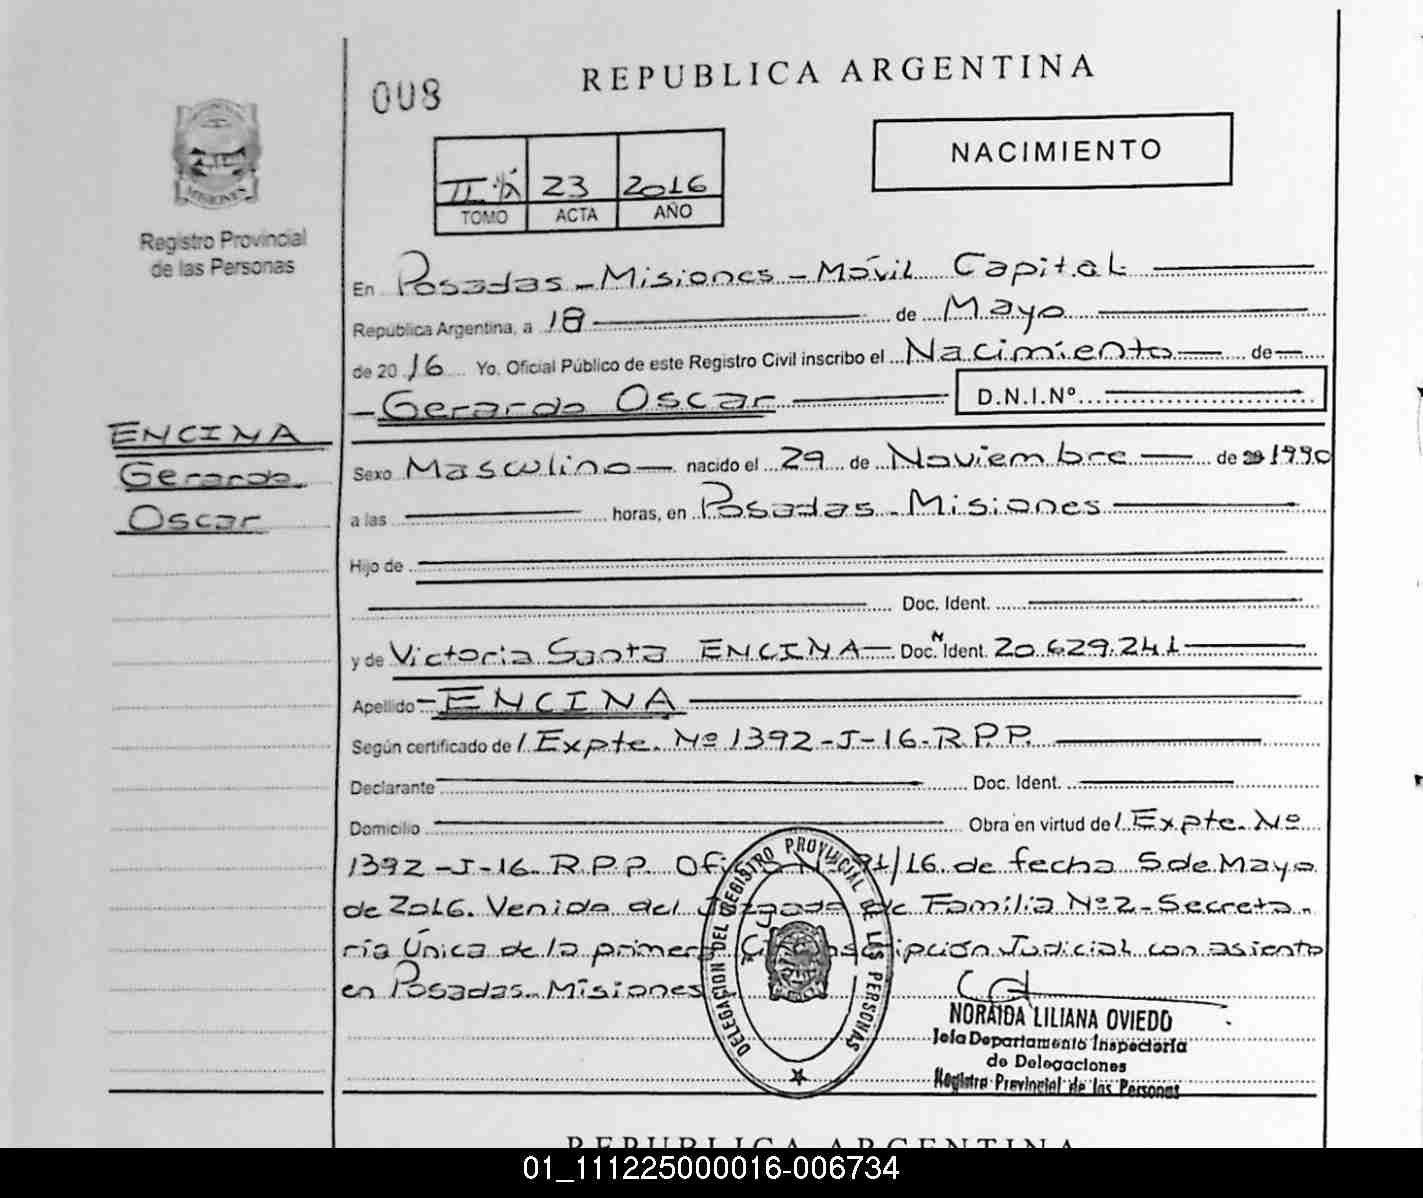 008
REPUBLICA ARGENTINA
NACIMIENTO
II 23 2016
TOMO ACTA AÑO
MISIONES
Registro Provincial
de las Personas
En Posadas - Misiones - Móvil Capital
República Argentina, a 18 de Mayo
de 2016 Yo, Oficial Público de este Registro Civil inscribo el Nacimiento de
Gerardo Oscar D.N.I.Nº
ENCINA
Gerardo
Oscar
Sexo Masculino nacido el 29 de Noviembre de 1990
a las horas, en Posadas - Misiones
Hijo de
Doc. Ident.
y de Victoria Santa ENCINA Doc. Nº Ident. 20.629.241
Apellido ENCINA
Según certificado de / Expte. Nº 1392-J-16-R.P.P.
Declarante Doc. Ident.
Domicilio Obra en virtud de / Expte. Nº
1392-J-16. R.P.P. 91/16 de fecha 5 de Mayo
de 2016. Venido del Juzgado de Familia Nº2-Secreta-
ría Única de la primera Circunscripción Judicial con asiento
en Posadas - Misiones
DELEGACION DEL REGISTRO PROVINCIAL DE LAS PERSONAS
NORAIDA LILIANA OVIEDO
Jefa Departamento Inspectoría
de Delegaciones
Registro Provincial de las Personas
REPUBLICA ARGENTINA
01_111225000016-006734